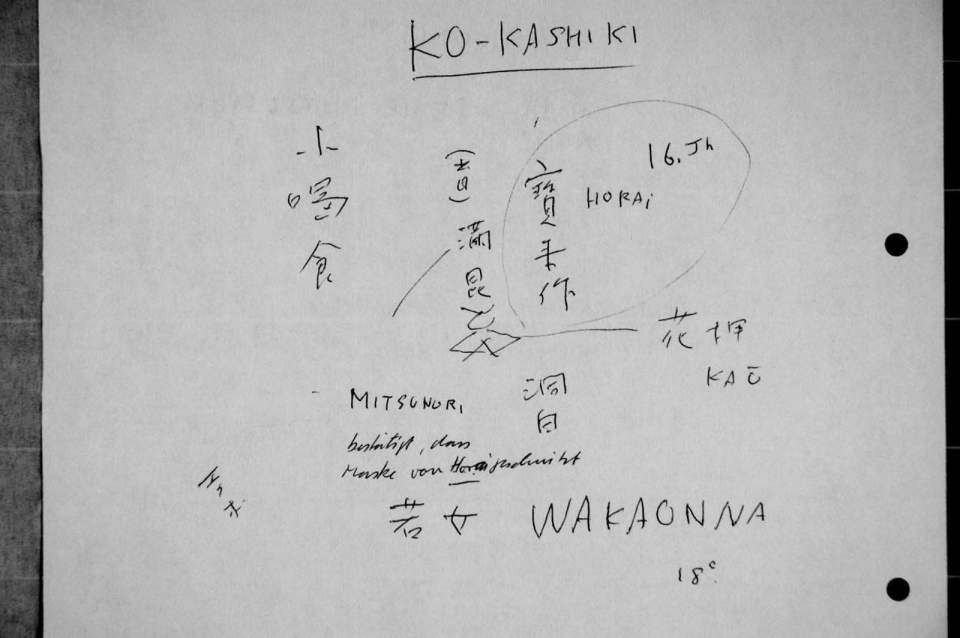 KO-KASHIKI
小喝食
寶来作
16. Jh
HORAI
満昆
花押
KAŌ
MITSUNORI
洞白
bestätigt, dass
Maske von Horai geschnitzt
若女 WAKAONNA
18°